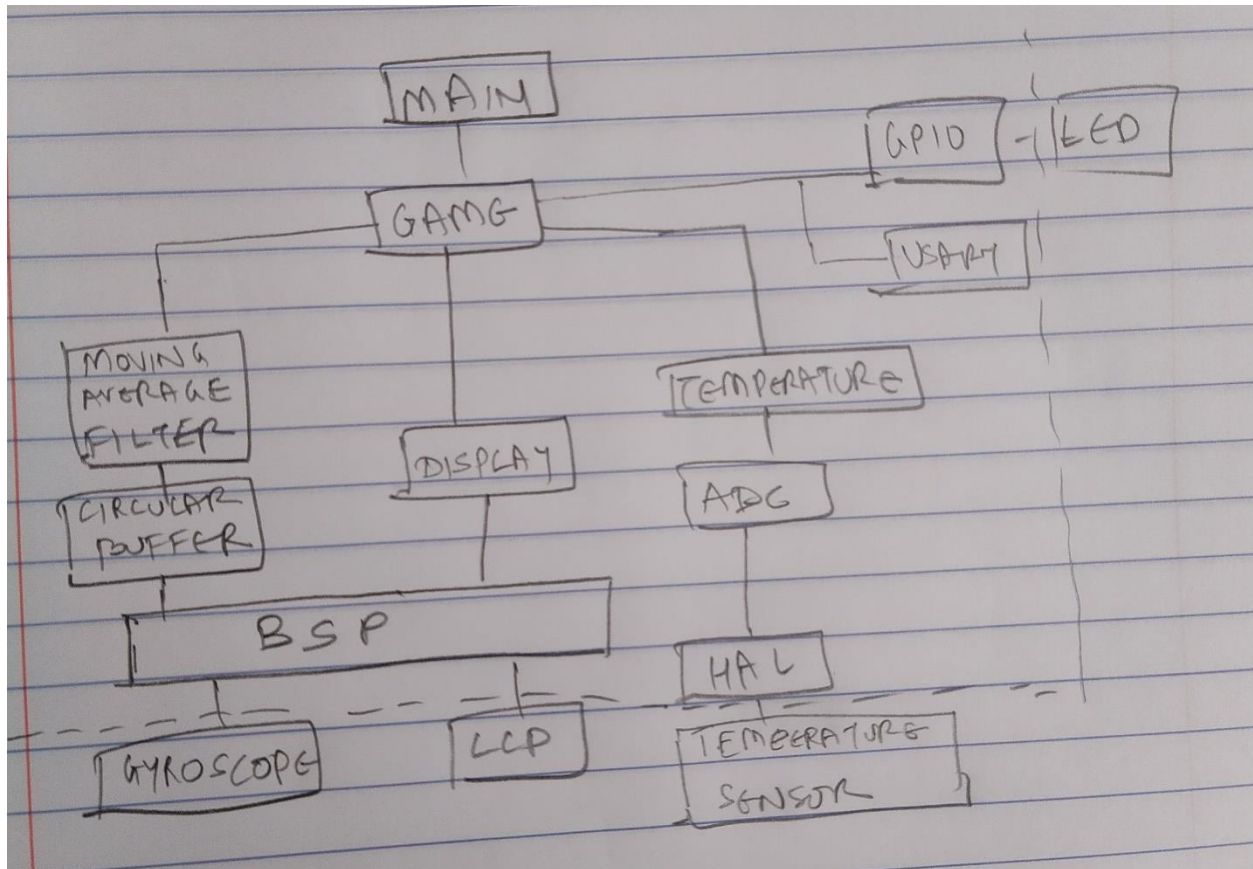 MAIN
GPIO
LED
GAME
USART
MOVING
AVERAGE
FILTER
TEMPERATURE
DISPLAY
ADC
CIRCULAR
BUFFER
BSP
HAL
GYROSCOPE
LCD
TEMPERATURE
SENSOR